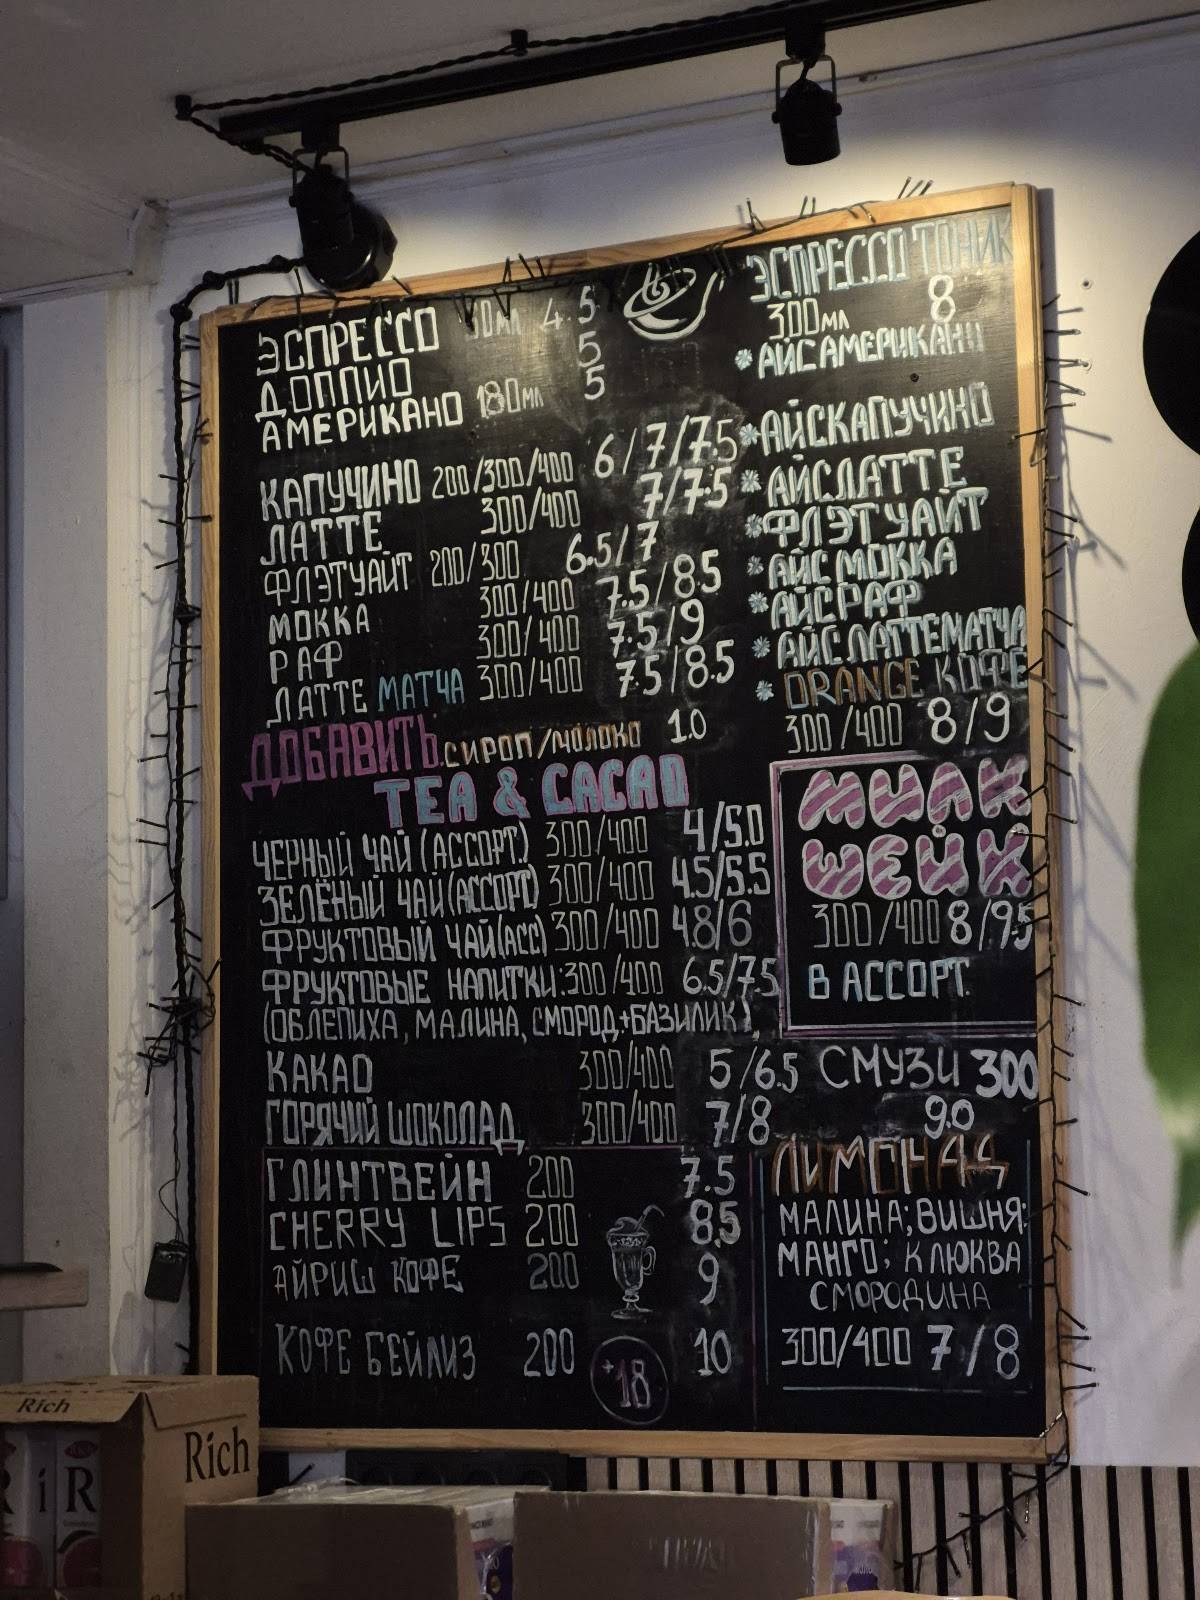 ЭСПРЕССО 4.5
ДОППИО 5
АМЕРИКАНО 180мл 5
КАПУЧИНО 200/300/400 6/7/7.5
ЛАТТЕ 300/400 7/7.5
ФЛЭТУАЙТ 200/300 6.5/7
МОККА 300/400 7.5/8.5
РАФ 300/400 7.5/9
ЛАТТЕ МАТЧА 300/400 7.5/8.5
ДОБАВИТЬ: СИРОП/МОЛОКО 1.0
TEA & CACAO
ЧЕРНЫЙ ЧАЙ (АССОРТ.) 300/400 4/5.0
ЗЕЛЁНЫЙ ЧАЙ (АССОРТ) 300/400 4.5/5.5
ФРУКТОВЫЙ ЧАЙ (АСС) 300/400 4.8/6
ФРУКТОВЫЕ НАПИТКИ: 300/400 6.5/7.5
(ОБЛЕПИХА, МАЛИНА, СМОРОД.+БАЗИЛИК)
КАКАО 300/400 5/6.5
ГОРЯЧИЙ ШОКОЛАД 300/400 7/8
ГЛИНТВЕЙН 200 7.5
CHERRY LIPS 200 8.5
АЙРИШ КОФЕ 200 9
КОФЕ БЕЙЛИЗ 200 10
+18
ЭСПРЕССО ТОНИК
300мл 8
*АЙС АМЕРИКАНО
*АЙСКАПУЧИНО
*АЙСЛАТТЕ
*ФЛЭТУАЙТ
*АЙС МОККА
*АЙСРАФ
*АЙС ЛАТТЕМАТЧА
*ORANGE КОФЕ
300/400 8/9
МИЛК
ШЕЙК
300/400 8/9.5
В АССОРТ.
СМУЗИ 300
9.0
ЛИМОНАД
МАЛИНА; ВИШНЯ;
МАНГО; КЛЮКВА
СМОРОДИНА
300/400 7/8
Rich
Rich